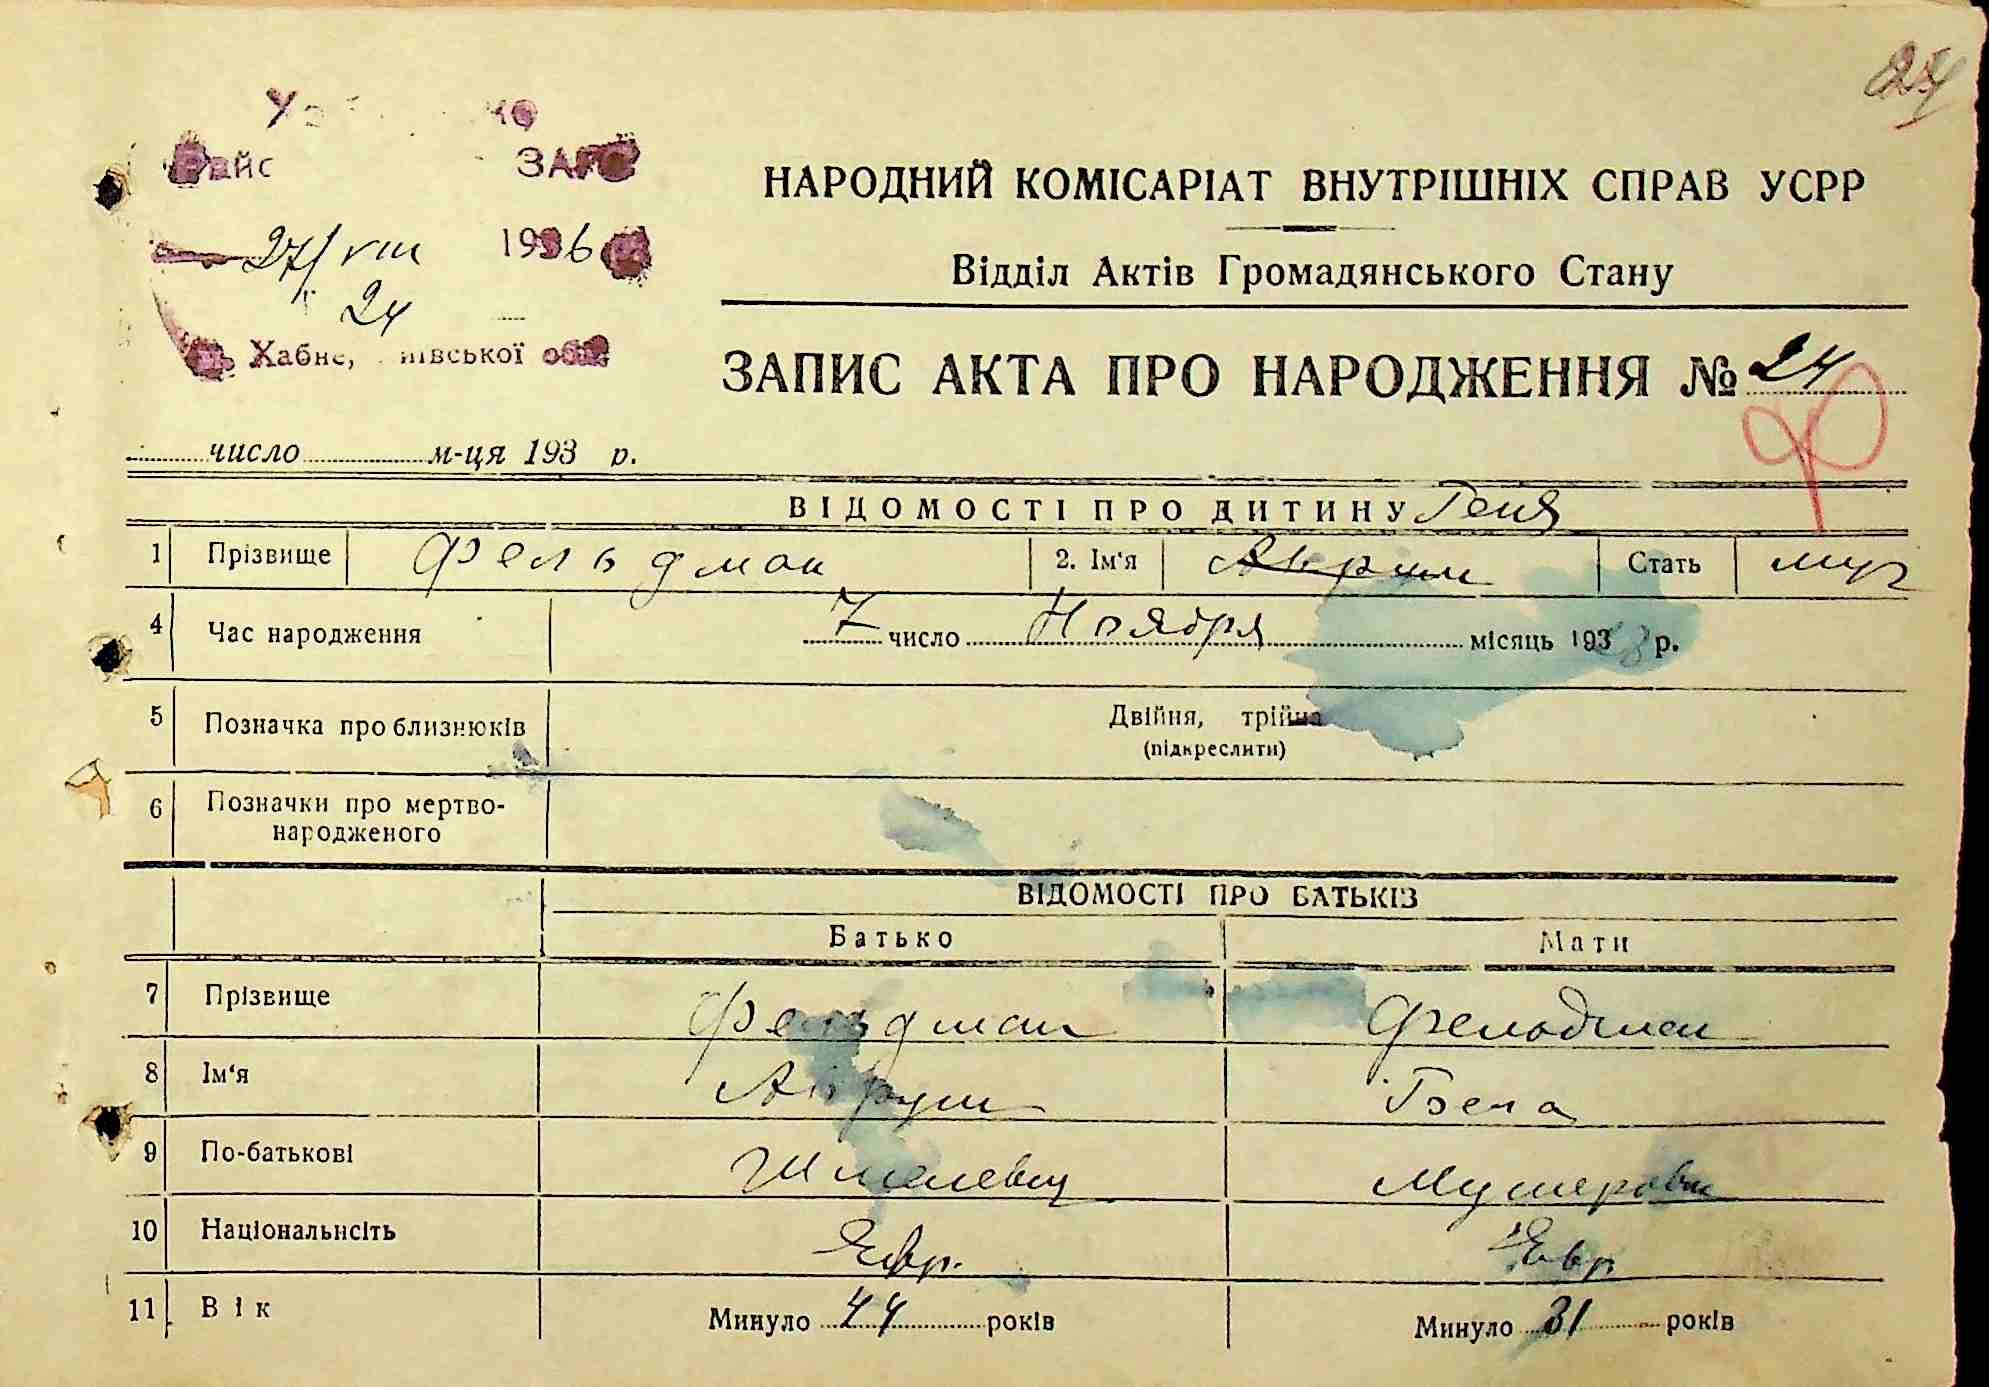 24
Райс ЗАГС
27/VIII 1936
24
Хабне, иївської обл
НАРОДНИЙ КОМІСАРІАТ ВНУТРІШНІХ СПРАВ УСРР
Відділ Актів Громадянського Стану
ЗАПИС АКТА ПРО НАРОДЖЕННЯ № 24
число м-ця 193 р.
ВІДОМОСТІ ПРО ДИТИНУ Геня
1 Прізвище Фельдман 2. Ім'я Стать муч
4 Час народження 7 число Ноября місяць 193 р.
5 Позначка про близнюків Двійня, трійня
(підкреслити)
6 Позначки про мертво-
народженого
ВІДОМОСТІ ПРО БАТЬКІВ
Батько Мати
7 Прізвище Фельдман Фельдман
8 Ім'я Аврум Бела
9 По-батькові Шмулевич
10 Національнсіть Явр. Явр
11 Вік Минуло 44 років Минуло 31 років